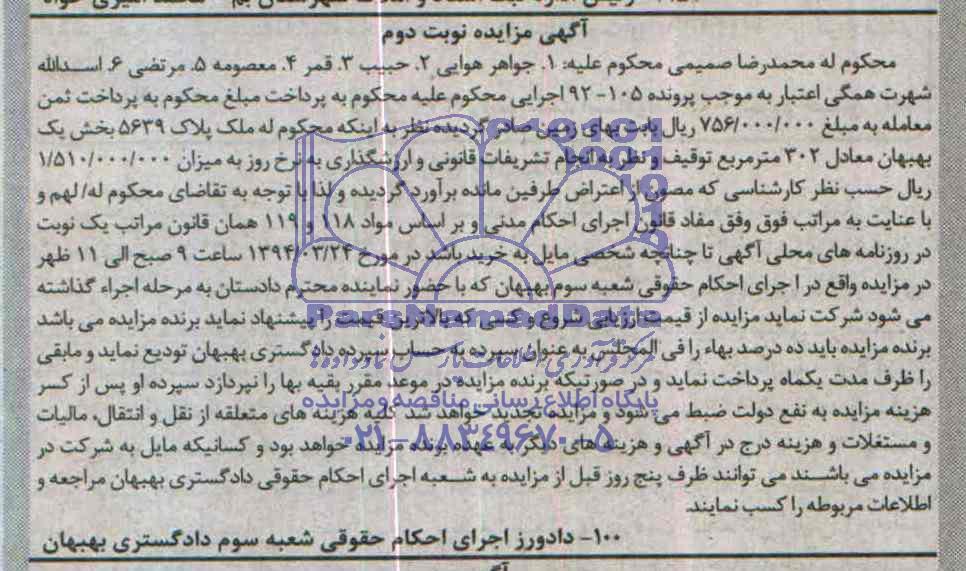 آگهی مزایده نوبت دوم
محکوم له محمدرضا صمیمی محکوم علیه: ۱. جواهر هوایی ۲. حبیب ۳. قمر ۴. معصومه ۵. مرتضی ۶. اسدالله
شهرت همگی اعتبار به موجب پرونده ۱۰۵-۹۲ اجرایی محکوم علیه محکوم به پرداخت مبلغ محکوم به پرداخت ثمن
معامله به مبلغ ۷۵۶/۰۰۰/۰۰۰ ریال بابت بهای زمین صادر گردیده نظر به اینکه محکوم له ملک پلاک ۵۶۳۹ بخش یک
بهبهان معادل ۳۰۲ مترمربع توقیف و نظر به انجام تشریفات قانونی و ارزشگذاری به نرخ روز به میزان ۱/۵۱۰/۰۰۰/۰۰۰
ریال حسب نظر کارشناسی که مصون از اعتراض طرفین مانده برآورد گردیده و لذا با توجه به تقاضای محکوم له/ لهم و
با عنایت به مراتب فوق وفق مفاد قانون اجرای احکام مدنی و بر اساس مواد ۱۱۸ و ۱۱۹ همان قانون مراتب یک نوبت
در روزنامه های محلی آگهی تا چنانچه شخصی مایل به خرید باشد در مورخ ۱۳۹۴/۰۳/۲۴ ساعت ۹ صبح الی ۱۱ ظهر
در مزایده واقع در اجرای احکام حقوقی شعبه سوم بهبهان که با حضور نماینده محترم دادستان به مرحله اجراء گذاشته
می شود شرکت نماید مزایده از قیمت ارزیابی شروع و کسی که بالاترین قیمت را پیشنهاد نماید برنده مزایده می باشد
برنده مزایده باید ده درصد بهاء را فی المجلس به عنوان سپرده به حساب سپرده دادگستری بهبهان تودیع نماید و مابقی
را ظرف مدت یکماه پرداخت نماید و در صورتیکه برنده مزایده در موعد مقرر بقیه بها را نپردازد سپرده او پس از کسر
هزینه مزایده به نفع دولت ضبط می شود و مزایده تجدید خواهد شد کلیه هزینه های متعلقه از نقل و انتقال، مالیات
و مستغلات و هزینه درج در آگهی و هزینه های دیگر به عهده برنده مزایده خواهد بود و کسانیکه مایل به شرکت در
مزایده می باشند می توانند ظرف پنج روز قبل از مزایده به شعبه اجرای احکام حقوقی دادگستری بهبهان مراجعه و
اطلاعات مربوطه را کسب نمایند.
۱۰۰- دادورز اجرای احکام حقوقی شعبه سوم دادگستری بهبهان
ParsNamadData
پایگاه اطلاع رسانی مناقصه و مزایده
۰۲۱-۸۸۳۴۹۶۷۰-۵